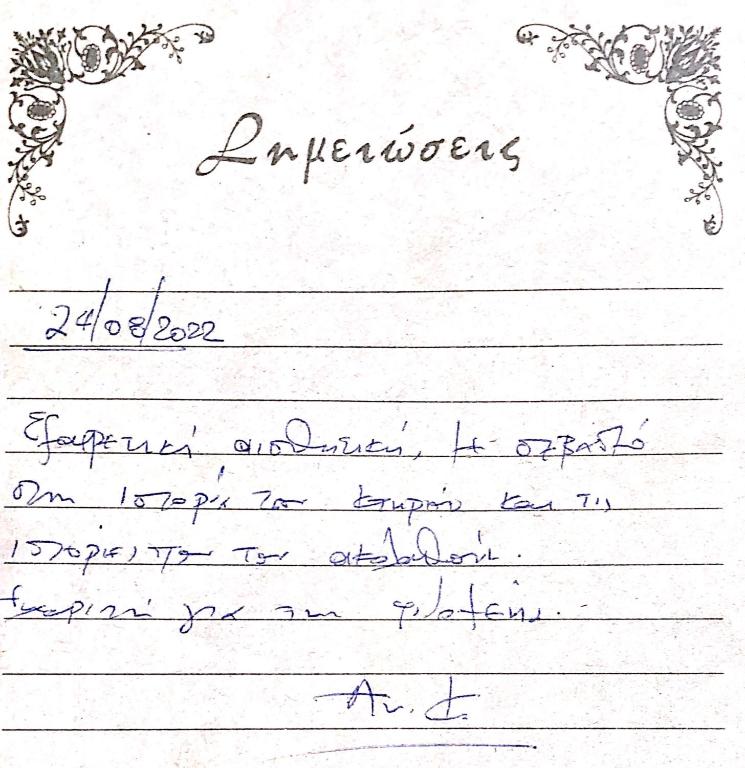 Σημειώσεις
24/08/2022
Εξαιρετική αισθητική, με σεβασμό
στην ιστορία του κτηρίου και τις
ιστορίες που τον ακολουθούν.
Ευχαριστώ για την φιλοξενία.
Αν.